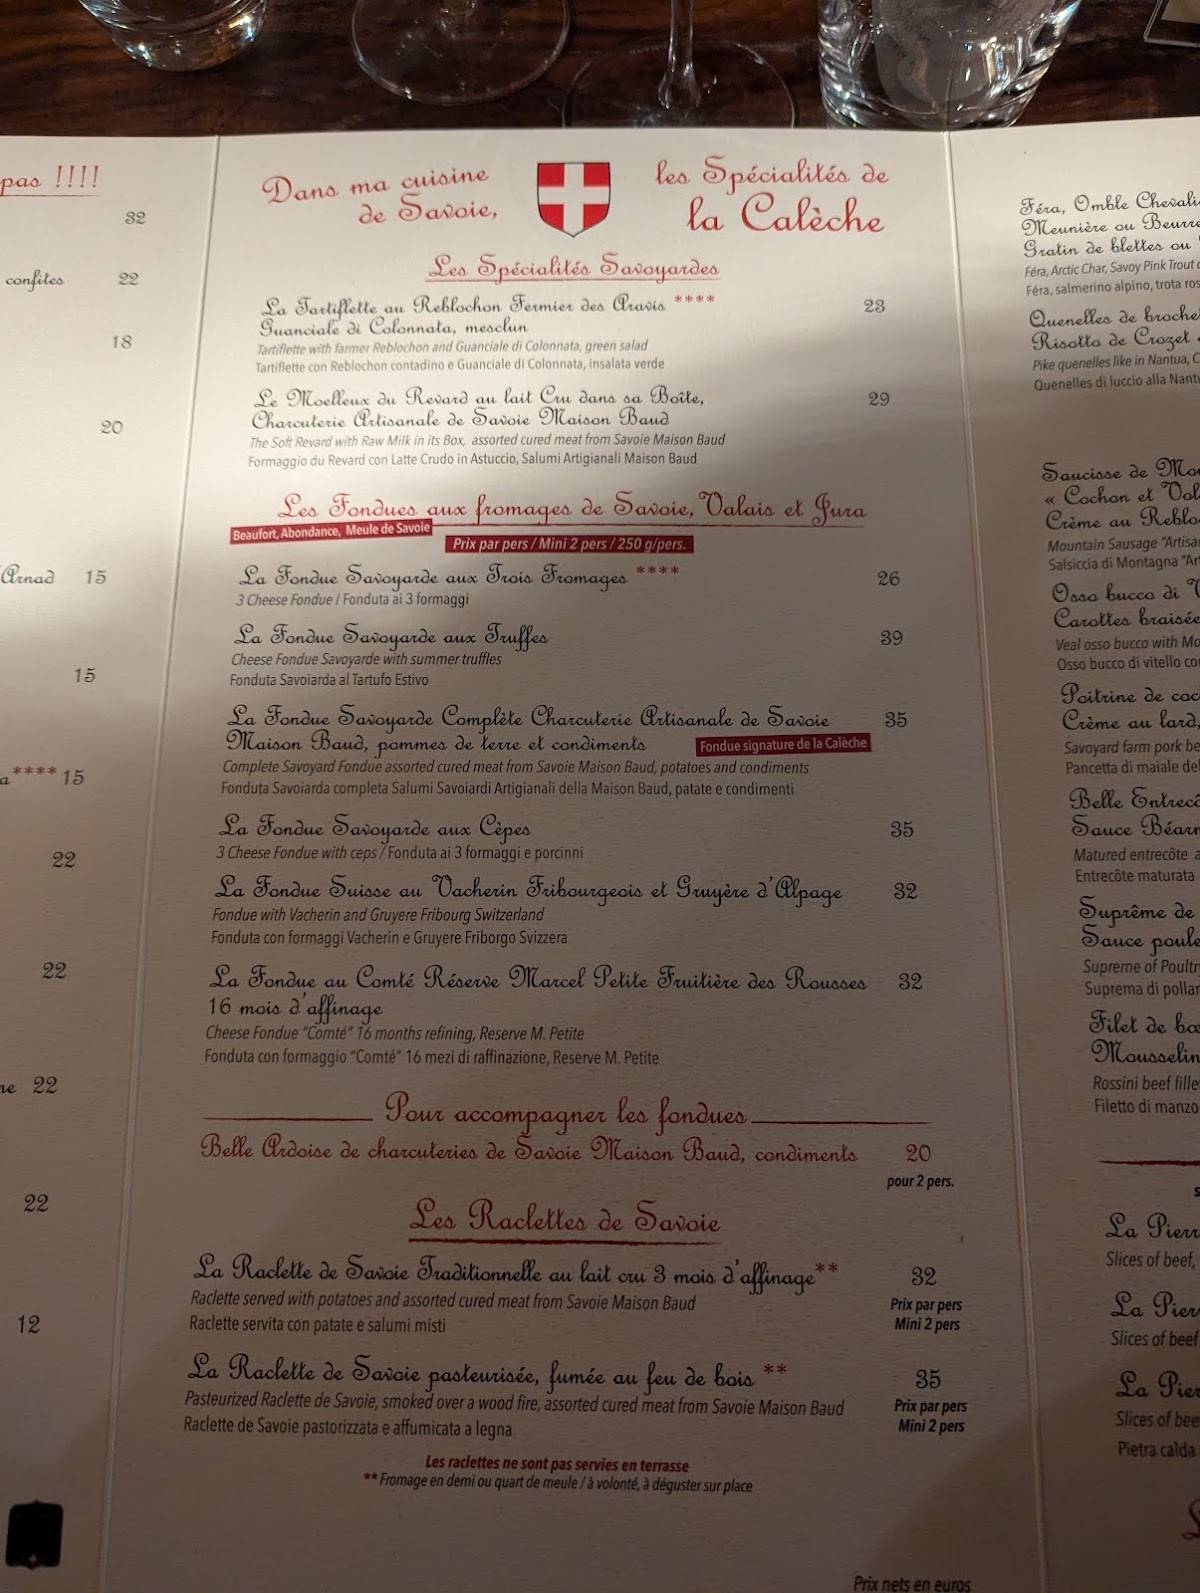 pas !!!!
32
confites 22
18
20
Arnad 15
15
a**** 15
22
22
ne 22
22
12
Dans ma cuisine
de Savoie,
les Spécialités de
la Calèche
Les Spécialités Savoyardes
La Tartiflette au Reblochon Fermier des Aravis **** 23
Guanciale di Colonnata, mesclun
Tartiflette with farmer Reblochon and Guanciale di Colonnata, green salad
Tartiflette con Reblochon contadino e Guanciale di Colonnata, insalata verde
Le Moelleux du Revard au lait Cru dans sa Boîte, 29
Charcuterie Artisanale de Savoie Maison Baud
The Soft Revard with Raw Milk in its Box, assorted cured meat from Savoie Maison Baud
Formaggio du Revard con Latte Crudo in Astuccio, Salumi Artigianali Maison Baud
Les Fondues aux fromages de Savoie, Valais et Jura
Beaufort, Abondance, Meule de Savoie
Prix par pers / Mini 2 pers / 250 g/pers.
La Fondue Savoyarde aux Trois Fromages **** 26
3 Cheese Fondue / Fonduta ai 3 formaggi
La Fondue Savoyarde aux Truffes 39
Cheese Fondue Savoyarde with summer truffles
Fonduta Savoiarda al Tartufo Estivo
La Fondue Savoyarde Complète Charcuterie Artisanale de Savoie 35
Maison Baud, pommes de terre et condiments
Fondue signature de la Calèche
Complete Savoyard Fondue assorted cured meat from Savoie Maison Baud, potatoes and condiments
Fonduta Savoiarda completa Salumi Savoiardi Artigianali della Maison Baud, patate e condimenti
La Fondue Savoyarde aux Cèpes 35
3 Cheese Fondue with ceps / Fonduta ai 3 formaggi e porcinni
La Fondue Suisse au Vacherin Fribourgeois et Gruyère d'Alpage 32
Fondue with Vacherin and Gruyere Fribourg Switzerland
Fonduta con formaggi Vacherin e Gruyere Friborgo Svizzera
La Fondue au Comté Réserve Marcel Petite Fruitière des Rousses 32
16 mois d'affinage
Cheese Fondue "Comté" 16 months refining, Reserve M. Petite
Fonduta con formaggio "Comté" 16 mezi di raffinazione, Reserve M. Petite
Pour accompagner les fondues
Belle Ardoise de charcuteries de Savoie Maison Baud, condiments 20
pour 2 pers.
Les Raclettes de Savoie
La Raclette de Savoie Traditionnelle au lait cru 3 mois d'affinage** 32
Raclette served with potatoes and assorted cured meat from Savoie Maison Baud
Prix par pers
Raclette servita con patate e salumi misti
Mini 2 pers
La Raclette de Savoie pasteurisée, fumée au feu de bois ** 35
Pasteurized Raclette de Savoie, smoked over a wood fire, assorted cured meat from Savoie Maison Baud
Prix par pers
Raclette de Savoie pastorizzata e affumicata a legna
Mini 2 pers
Les raclettes ne sont pas servies en terrasse
** Fromage en demi ou quart de meule / à volonté, à déguster sur place
Prix nets en euros
Féra, Omble Chevali
Meunière ou Beurre
Gratin de blettes ou
Féra, Arctic Char, Savoy Pink Trout
Féra, salmerino alpino, trota ros
Quenelles de broche
Risotto de Crozet
Pike quenelles like in Nantua, C
Quenelles di luccio alla Nant
Saucisse de Mo
« Cochon et Vol
Crème au Reblo
Mountain Sausage "Artisa
Salsiccia di Montagna "Ar
Osso bucco di
Carottes braisée
Veal osso bucco with Mo
Osso bucco di vitello co
Poitrine de coc
Crème au lard,
Savoyard farm pork be
Pancetta di maiale del
Belle Entrecô
Sauce Béarn
Matured entrecôte a
Entrecôte maturata
Suprême de
Sauce poule
Supreme of Poultr
Suprema di pollar
Filet de bœ
Mousselin
Rossini beef fille
Filetto di manzo
s
La Pierr
Slices of beef,
La Pier
Slices of beef
La Pier
Slices of bee
Pietra calda